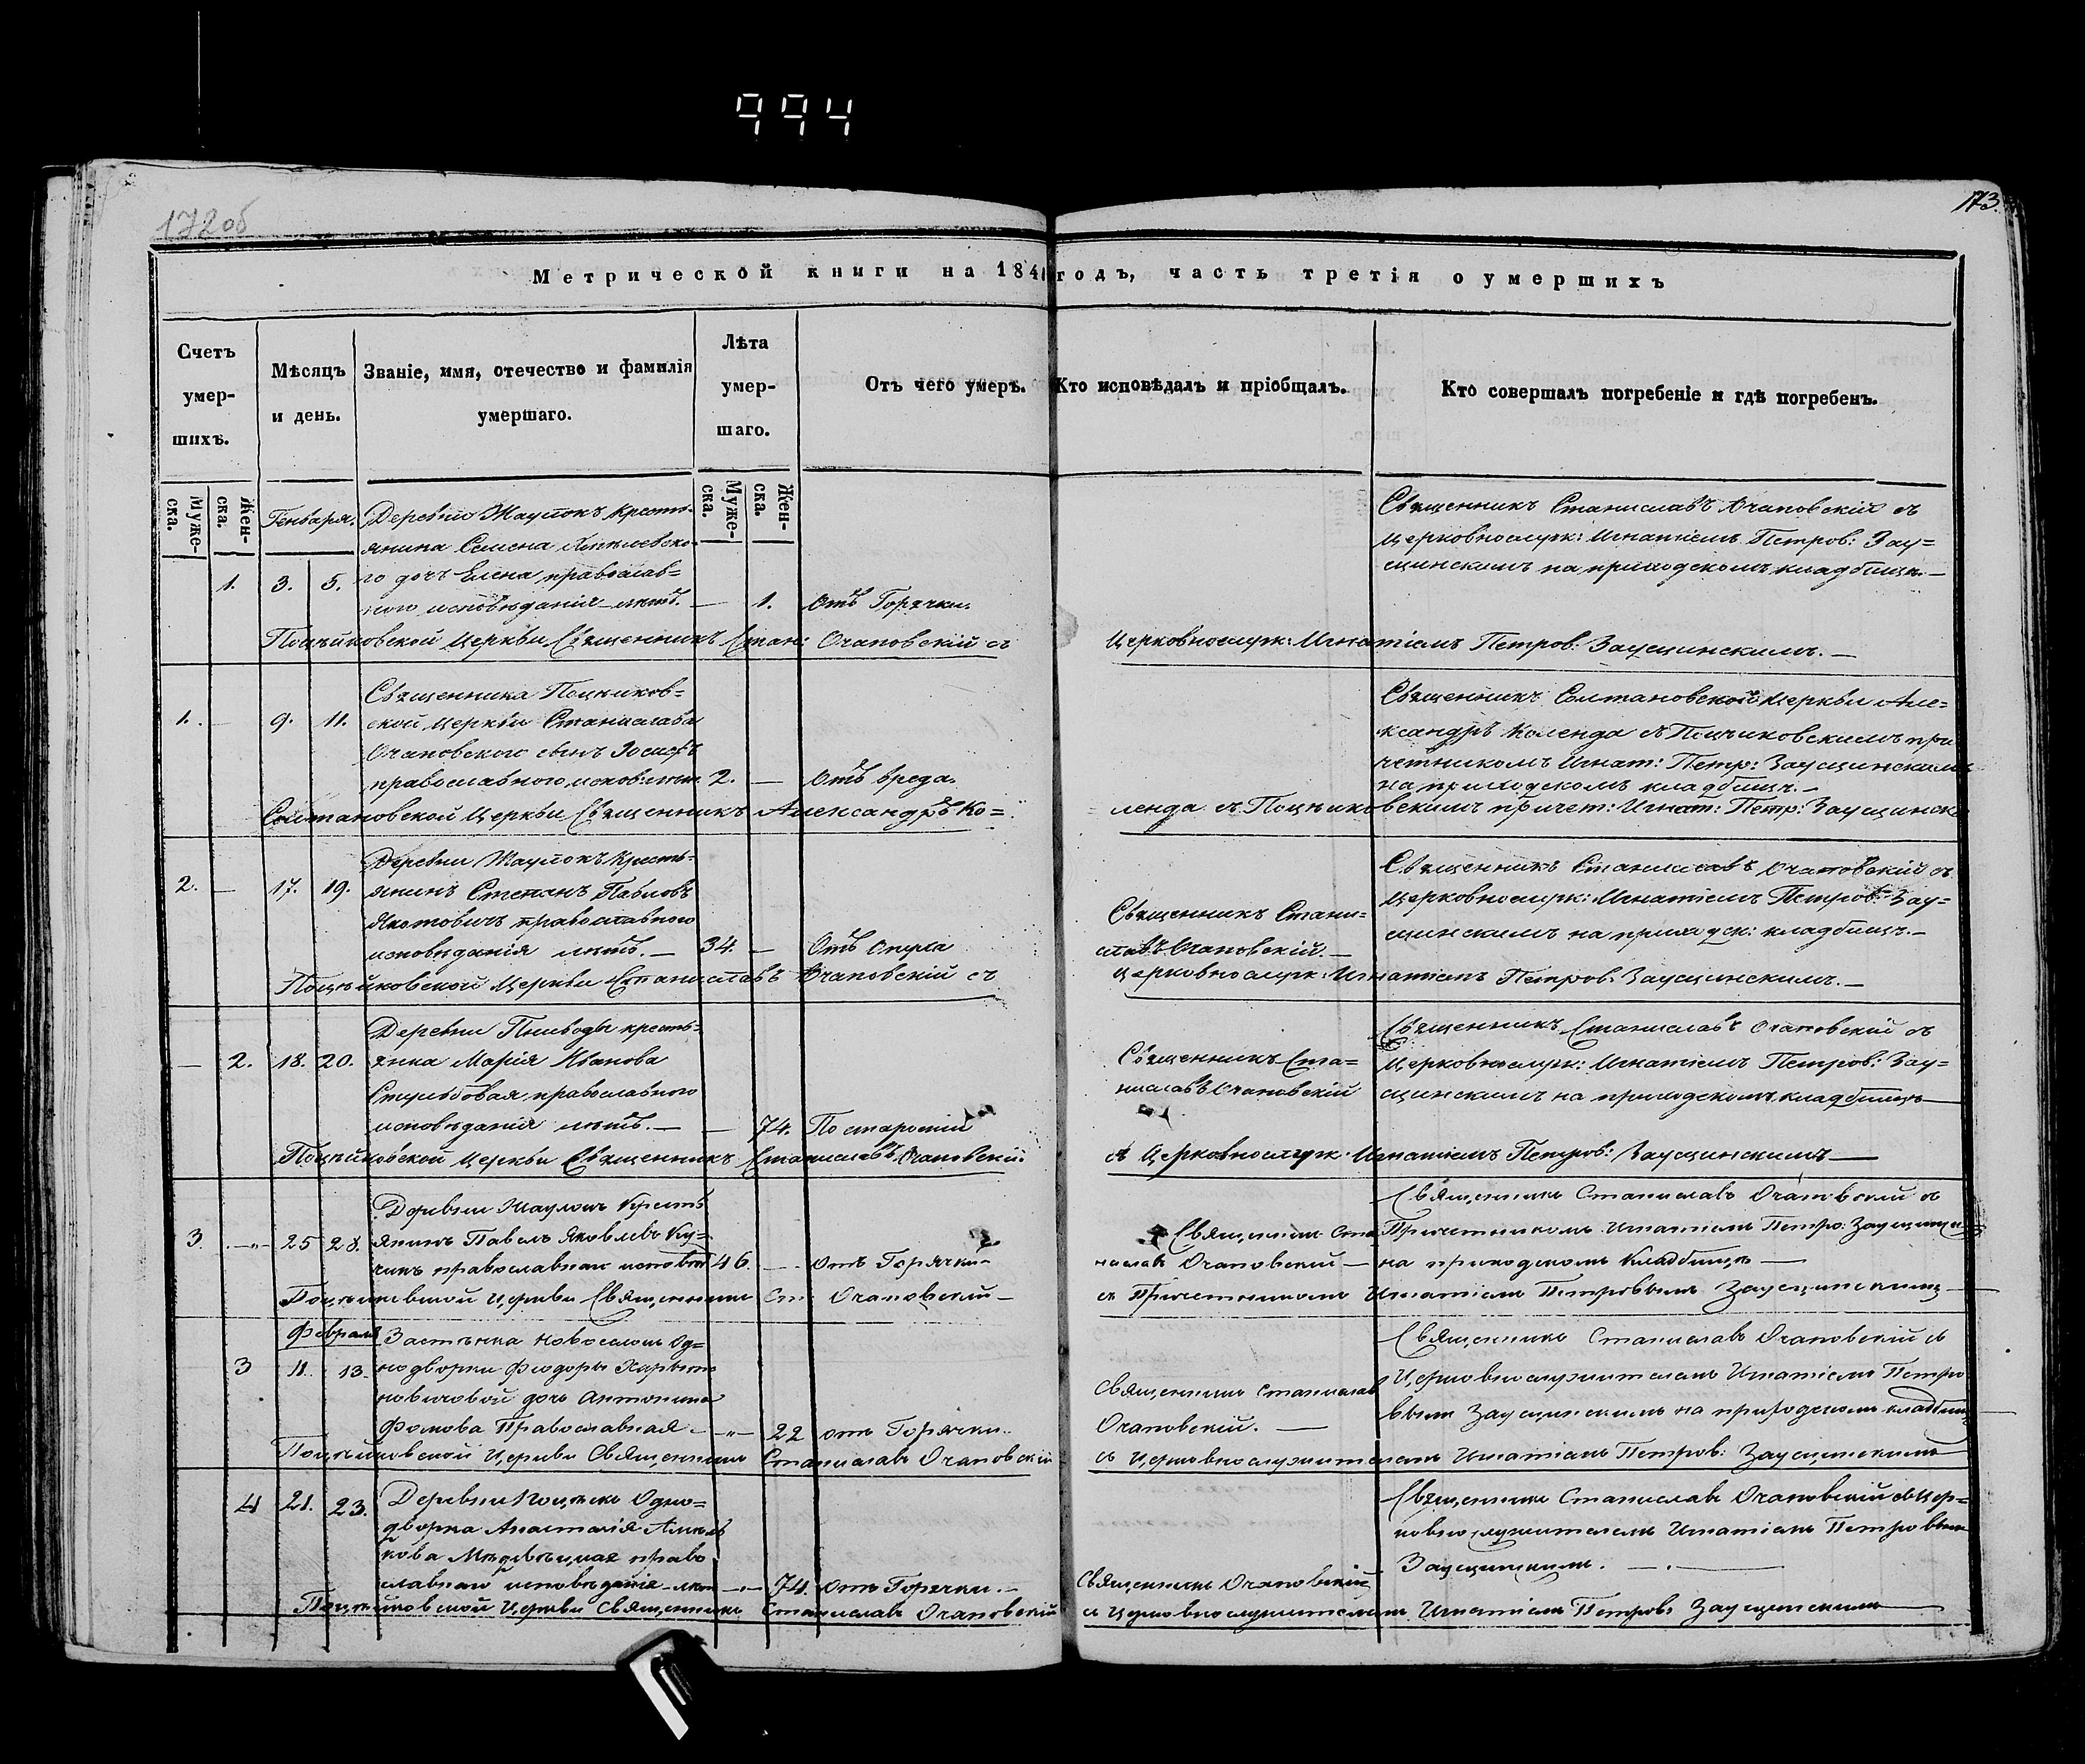 994
172об
173.
Метрической книги на 184 годъ, часть третія о умершихъ
Счетъ умер-шихъ.
Мѣсяцъ и день.
Званіе, имя, отечество и фамилія умершаго.
Лѣта умер-шаго.
Отъ чего умеръ.
Кто исповѣдалъ и пріобщалъ.
Кто совершалъ погребеніе и гдѣ погребенъ.
Муже-ска.
Жен-ска.
Муже-ска.
Жен-ска.
Генваря.
1. 3. 5.
Деревни Жаулокъ Кресть-
янина Семена
го дочь Елена, православ-
ного исповѣданія лѣтъ. —
1.
Отъ Горячки.
Священникъ Станиславъ Очаповскій съ
Церковнослуж: Игнатіемъ Петров: Зау=
щинскимъ на приходскомъ кладбищѣ. —
Поцѣйковской Церкви Священникъ Стан: Очаповскій съ
Церковнослуж: Игнатіемъ Петров: Заущинскимъ. —
1. — 9. 11.
Священника Поцѣйков=
ской Церкви Станислава
Очаповского сынъ Іосифъ
православного исков: лѣтъ
2. —
Отъ вреда.
Священникъ Солтановской Церкви Але=
ксандръ Коленда съ Поцѣйковскимъ при
четникомъ Игнат: Петр: Заущинскимъ
на приходскомъ кладбищѣ. —
Солтановской Церкви Священникъ Александръ Ко=
ленда съ Поцѣйковскимъ причет: Игнат: Петр: Заущинск
2. — 17. 19.
Деревни Жаулокъ Кресть-
янинъ Степанъ Павловъ
православного
исповѣданія лѣтъ. —
34. —
Отъ Опуха
Священникъ Стани=
славъ Очаповскій. —
Священникъ Станиславъ Очаповскій съ
Церковнослуж: Игнатіемъ Петров: Зау=
щинскимъ на приходск: кладбищѣ. —
Поцѣйковской Церкви Станиславъ Очаповскій съ
Церковнослуж: Игнатіемъ Петров: Заущинскимъ. —
— 2. 18. 20.
Деревни Пневоды кресть=
янка Марія Иванова
православного
исповѣданія лѣтъ. —
— 74.
По старости
Священникъ Ста=
ниславъ Очаповскій
Священникъ Станиславъ Очаповскій съ
Церковнослуж: Игнатіемъ Петров: Зау=
щинскимъ на приходскомъ кладбищѣ —
Поцѣйковской Церкви Священникъ Станиславъ Очаповскій
съ Церковнослуж: Игнатіемъ Петров: Заущинскимъ —
3. 25 28.
Деревни Жаулокъ Кресть
янинъ Павелъ Яковлевъ Ку=
чикъ православнаго исповѣд
46. —
отъ Горячки
Священникъ Ста
ниславъ Очаповскій —
Священникъ Станиславъ Очаповскій съ
Причетникомъ Игнатіемъ Петро: Заущинск
на приходскомъ кладбищѣ —
Поцѣйковской Церкви Священникъ Ст: Очаповскій —
съ Причетникомъ Игнатіемъ Петровымъ Заущинскимъ
Февраля
3 11. 13.
Застѣнка Новоселокъ Од=
нодворки Феодоры Харыто
новичовой дочь Антонина
Фомова Православная —
22
отъ Горячки.
Священникъ Станиславъ
Очаповскій. —
Священникъ Станиславъ Очаповскій съ
Церковнослужителемъ Игнатіемъ Петро
вымъ Заущинскимъ на приходскомъ кладбищ
Поцѣйковской Церкви Священникъ Станиславъ Очаповскій
съ Церковнослужителемъ Игнатіемъ Петров: Заущинскимъ
4 21. 23.
Деревни Одно=
дворка Анастасія
православнаго исповѣданія лѣтъ
74.
отъ Горячки. —
Священникъ Очаповскій
Священникъ Станиславъ Очаповскій съ Цер=
ковнослужителемъ Игнатіемъ Петровымъ
Заущинскимъ. —
Поцѣйковской Церкви Священникъ Станиславъ Очаповскій
съ Церковнослужителемъ Игнатіемъ Петров: Заущинскимъ